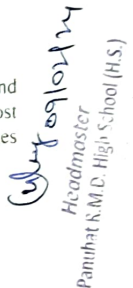 nd
ost
es
09/02/24
Headmaster
Panuhat K.M.D. High School (H.S.)